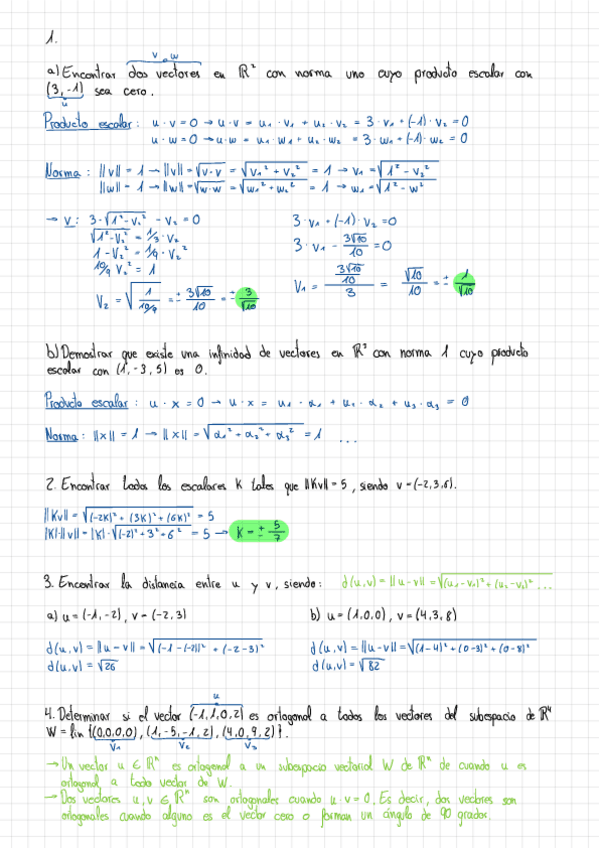 1.
v, w
a) Encontrar dos vectores en ℝ² con norma uno cuyo producto escalar con
(3, -1) sea cero.
u
Producto escalar: u · v = 0 → u · v = u₁ · v₁ + u₂ · v₂ = 3 · v₁ + (-1) · v₂ = 0
u · w = 0 → u · w = u₁ · w₁ + u₂ · w₂ = 3 · w₁ + (-1) · w₂ = 0
Norma: ||v|| = 1 → ||v|| = √(v · v) = √(v₁² + v₂²) = 1 → v₁ = √(1² - v₂²)
||w|| = 1 → ||w|| = √(w · w) = √(w₁² + w₂²) = 1 → w₁ = √(1² - w²)
→ v: 3 · √(1² - v₂²) - v₂ = 0
√(1² - v₂²) = 1/3 · v₂
1 - v₂² = 1/9 · v₂²
10/9 v₂² = 1
v₂ = √(1/(10/9)) = ± 3√10/10 = ± 3/√10
3 · v₁ + (-1) · v₂ = 0
3 · v₁ - 3√10/10 = 0
v₁ = (3√10/10)/3 = √10/10 = ± 1/√10
b) Demostrar que existe una infinidad de vectores en ℝ³ con norma 1 cuyo producto
escalar con (1, -3, 5) es 0.
Producto escalar: u · x = 0 → u · x = u₁ · α₁ + u₁ · α₂ + u₃ · α₃ = 0
Norma: ||x|| = 1 → ||x|| = √(α₁² + α₂² + α₃²) = 1 ...
2. Encontrar todos los escalares K tales que ||Kv|| = 5, siendo v = (-2,3,6).
||Kv|| = √((-2K)² + (3K)² + (6K)²) = 5
|K| · ||v|| = |K| · √((-2)² + 3² + 6²) = 5 → K = ± 5/7
3. Encontrar la distancia entre u y v, siendo: d(u,v) = ||u - v|| = √((u₁ - v₁)² + (u₂ - v₂)² ...
a) u = (-1, -2), v = (-2, 3)
d(u,v) = ||u - v|| = √((-1 - (-2))² + (-2 - 3)²
d(u,v) = √26
b) u = (1,0,0), v = (4,3,8)
d(u,v) = ||u - v|| = √((1-4)² + (0-3)² + (0-8)²
d(u,v) = √82
u
4. Determinar si el vector (-1,1,0,2) es ortogonal a todos los vectores del subespacio de ℝ⁴
W = lin {(0,0,0,0), (1,-5,-1,2), (4,0,9,2)}.
v₁ v₂ v₃
→ Un vector u ∈ ℝⁿ es ortogonal a un subespacio vectorial W de ℝⁿ de cuando u es
ortogonal a todo vector de W.
→ Dos vectores u, v ∈ ℝⁿ son ortogonales cuando u · v = 0. Es decir, dos vectores son
ortogonales cuando alguno es el vector cero o forman un ángulo de 90 grados.